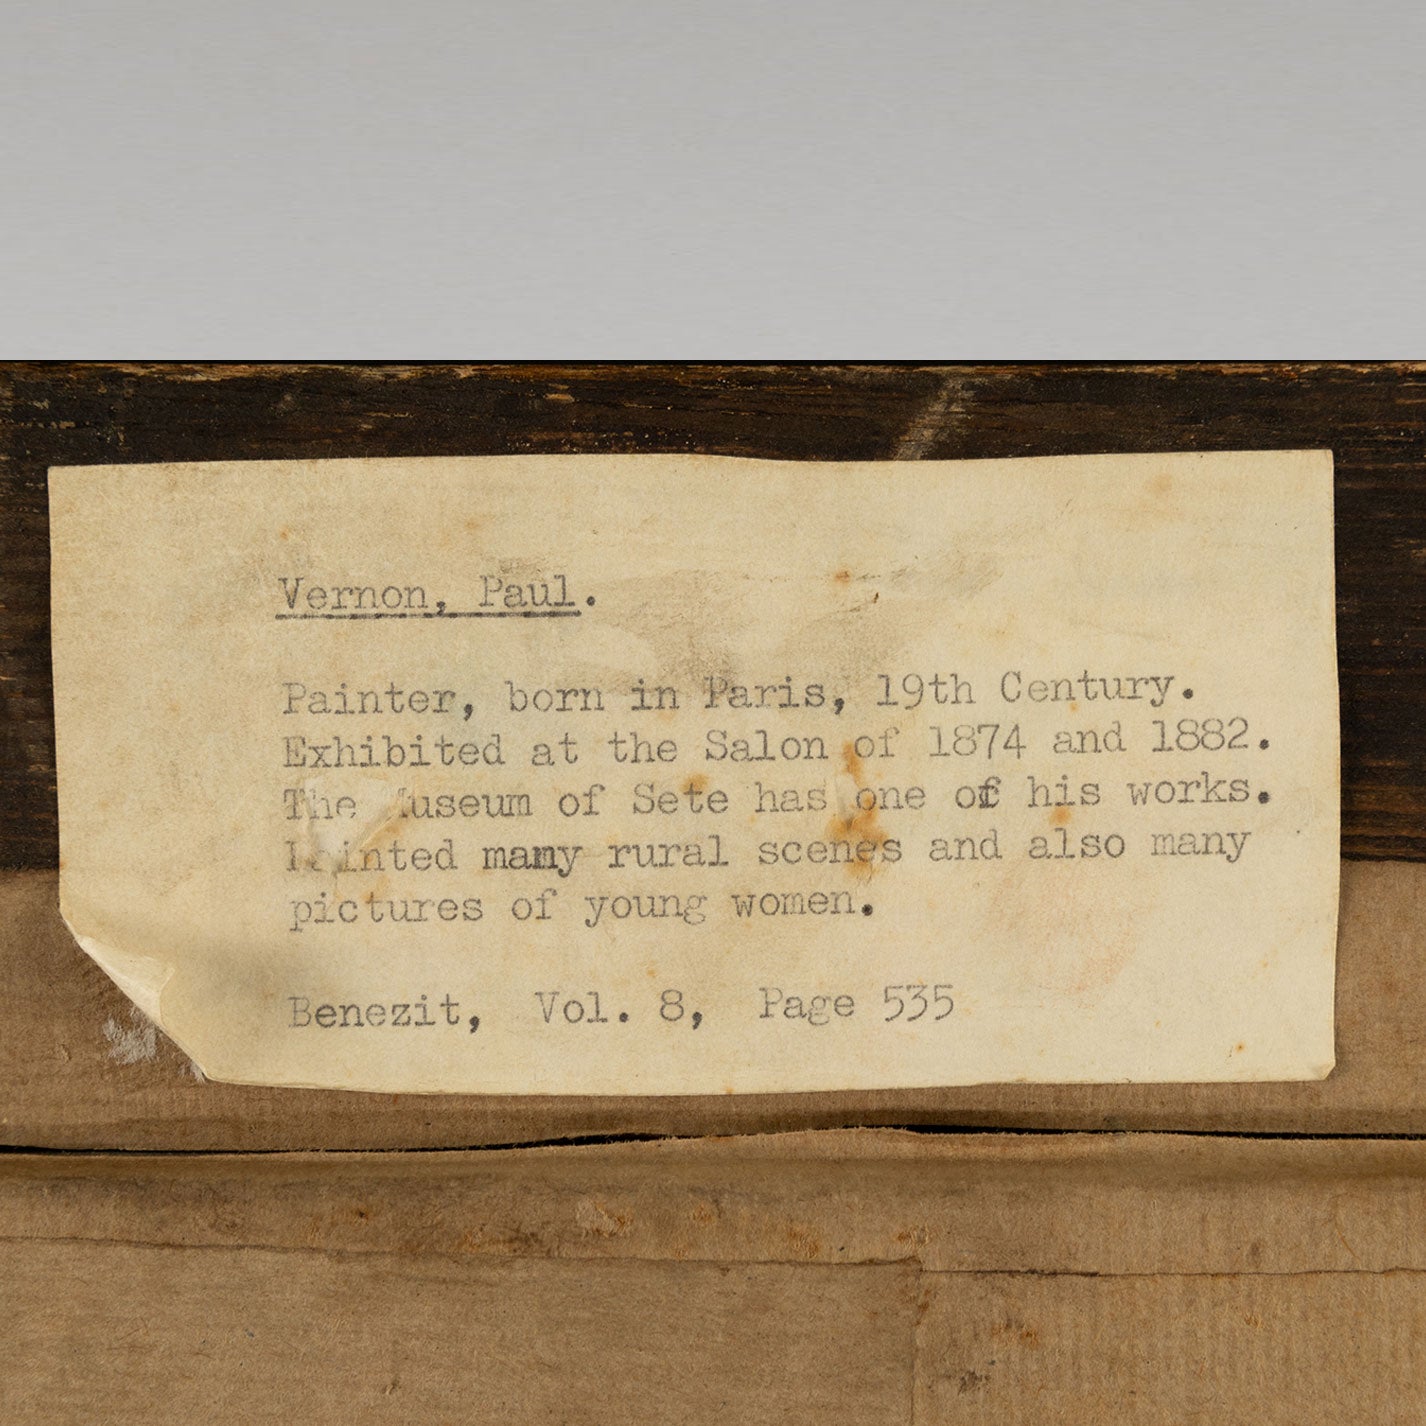 Vernon, Paul.
Painter, born in Paris, 19th Century.
Exhibited at the Salon of 1874 and 1882.
The Museum of Sete has one of his works.
Painted many rural scenes and also many
pictures of young women.
Benezit, Vol. 8, Page 535